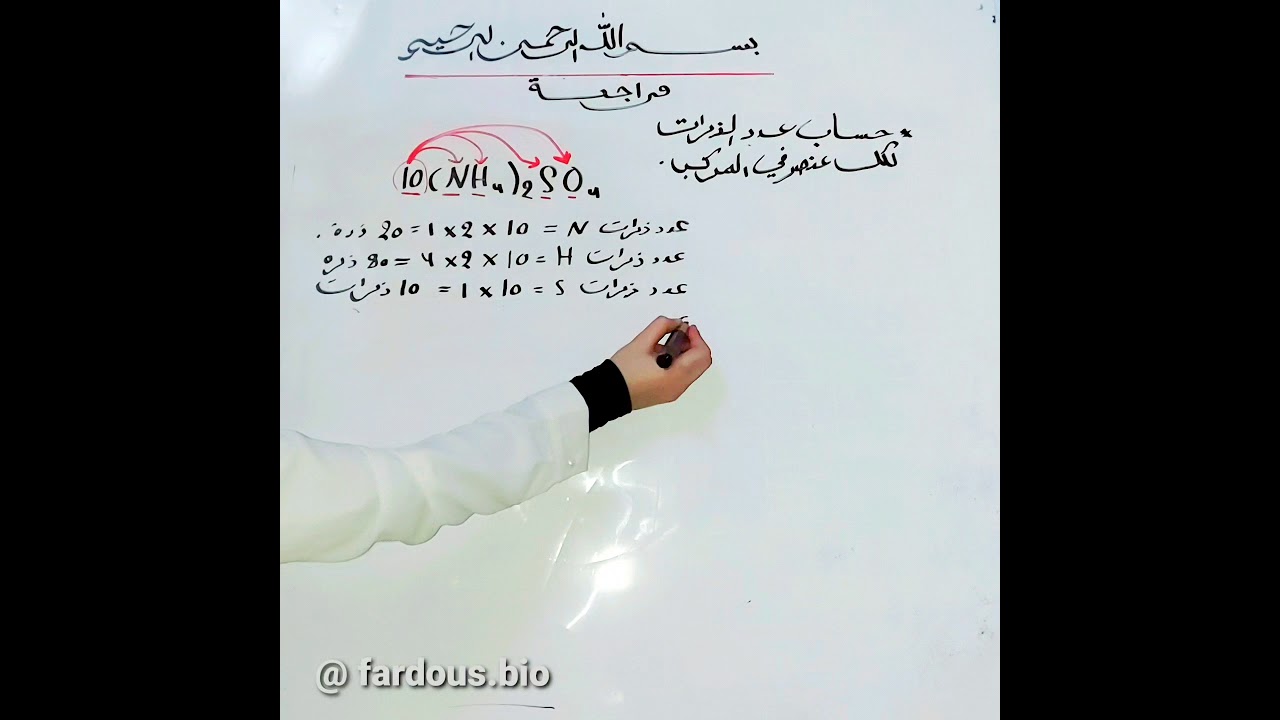 بسم الله الرحمن الرحيم
مراجعة
* حساب عدد الذرات
لكل عنصر في المركب.
10(NH₄)₂SO₄
عدد ذرات N = 10 × 2 × 1 = 20 ذرة.
عدد ذرات H = 10 × 2 × 4 = 80 ذرة
عدد ذرات S = 10 × 1 = 10 ذرات
@ fardous.bio